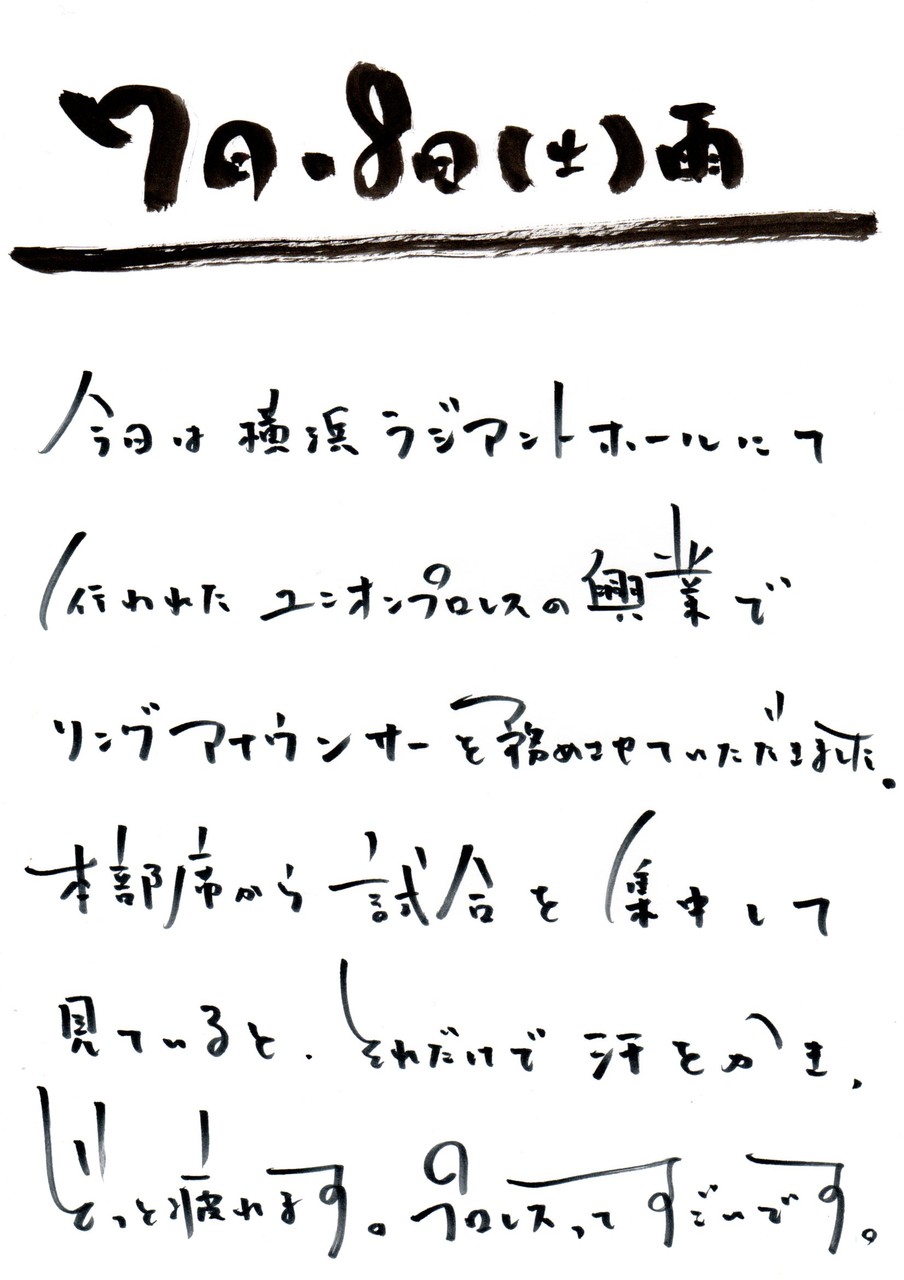 7日・8日(土)雨
今日は横浜ラジアントホールにて
行われたユニオンプロレスの興業で
リングアナウンサーを務めさせていただきました。
本部席から試合を集中して
見ていると、それだけで汗をかき、
どっと疲れます。プロレスってすごいです。